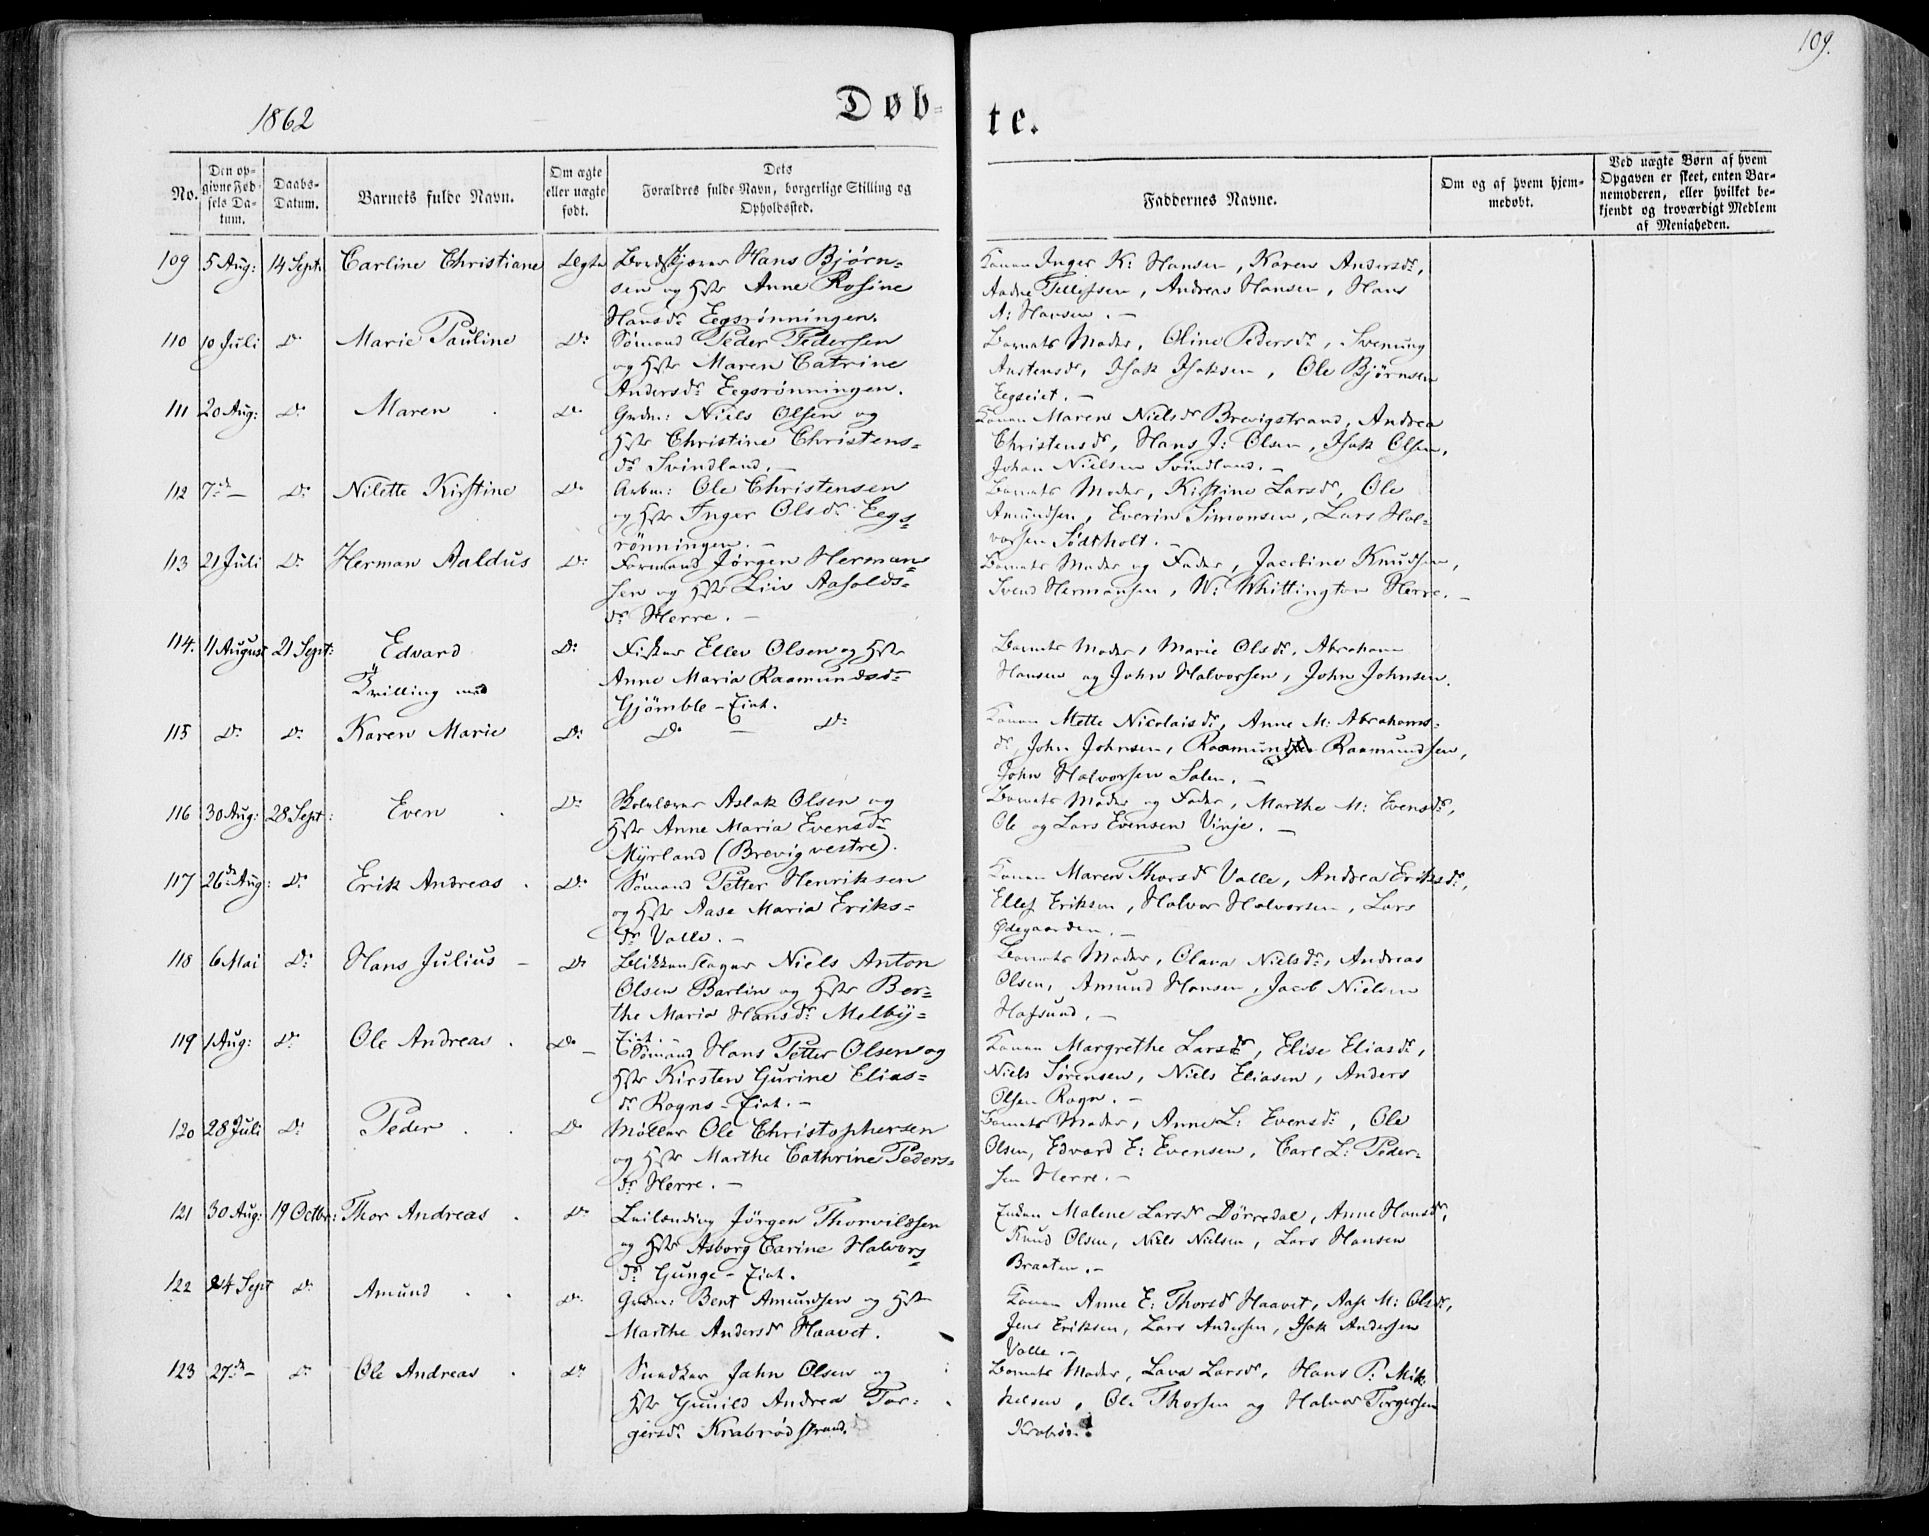 109.
1862
Døb-
te.
No.
Den op-
givne Fød-
sels Da-
tum.
Daabs-
Datum.
Barnets fulde Navn.
Om ægte
eller uægte
født.
Dets
Forældres fulde Navn, borgerlige Stilling og
Opholdssted.
Faddernes Navne.
Om og af hvem hjem-
medøbt.
Ved uægte Børn af hvem
Opgaven er skeet, enten Bar-
nemoderen, eller hvilket be-
kjendt og troværdigt Medlem
af Menigheden.
109 5 Aug: 14 Sept: Carline Christiane Ægte Bordskjærer Hans Bjørn-
sen og Hstr Anne Rosine
Hansdr Eegsrønningen.
Konen Inger K: Hansen, Karen Andersdr,
Aadne Tellefsen, Andreas Hansen, Hans
A: Hansen. —
110 10 Juli Do Marie Pauline Do Sømand Peder Pedersen
og Hstr Maren Catrine
Andersdr Eegsrønningen.
Barnets Moder, Oline Pedersdr, Svenung
Austensdr, Isak Isaksen, Ole Bjørnsen
Eegseiet. —
111 20 Aug: Do Maren Do Grdm: Niels Olsen og
Hstr Christine Christens-
dr Svindland. —
Konen Maren Nielsdr Brevigstrand, Andrea
Christensdr, Hans J: Olsen, Isak Olsen,
Johan Nielsen Svindland. —
112 7de — Do Nilette Kirstine Do Arbm: Ole Christensen
og Hstr Inger Olsdr Eegs-
rönningen. —
Barnets Moder, Kirstine Larsdr, Ole
Amundsen, Everin Simonsen, Lars Hal-
vorsen Södtholt. —
113 21 Juli Do Herman Aaldus Do Formand Jørgen Herman-
sen og Hstr Liv Aasolds-
dr Herre. —
Barnets Moder og Fader, Jacobine Knudsen,
Svend Hermansen, W: Whittington Herre. —
114. 11 August 21 Sept: Edvard Do Fisker Ellev Olsen og Hstr
Tvilling med
Anne Maria Raamundsdr
Gjömble-Eiet.
Barnets Moder, Marie Olsdr, Abraham
Hansen og John Halvorsen, John Johnsen.
115 Do Do Karen Marie Do Do — Do
Konen Mette Nicolaisdr, Anne M: Abrahams-
dr, John Johnsen, Raamund Raamundsen,
John Halvorsen Salen. —
116 30 Aug: 28 Sept: Even Do Skolelærer Aslak Olsen og
Hstr Anne Maria Evensdr
Myrland (Brevig vestre).
Barnets Moder og Fader, Marthe M: Evensdr,
Ole og Lars Evensen Vinje. —
117 26de Aug: Do Erik Andreas Do Sømand Petter Henriksen
og Hstr Aase Maria Eriks-
dr Valle. —
Konen Maren Thorsdr Valle, Andrea Eriksdr,
Ellef Eriksen, Halvor Halvorsen, Lars
Ødegaarden. —
118 6 Mai Do Hans Julius — Do Blikkenslager Niels Anton
Olsen Barlin og Hstr Ber-
the Maria Hansdr Melby-
Eiet. —
Barnets Moder, Olava Nielsdr, Andreas
Olsen, Amund Hansen, Jacob Nielsen
Hafsund. —
119 1 Aug: Do Ole Andreas Do — Sømand Hans Petter Olsen og
Hstr Kirsten Gurine Elias-
dr Rogns-Eiet. —
Konen Margrethe Larsdr, Elise Eliasdr,
Niels Sørensen, Niels Eliasen, Anders
Olsen Rogn. —
120 28 Juli Do Peder Do Möller Ole Christophersen
og Hstr Marthe Cathrine Peders-
dr Herre. —
Barnets Moder, Anne L: Evensdr, Ole
Olsen, Edvard E: Evensen, Carl L: Peder-
sen Herre. —
121 30 Aug: 19 Octbr: Thor Andreas Do Leilænding Jörgen Thorvildsen
og Hstr Asborg Carine Halvors-
dr Gunge-Eiet.
Enken Malene Larsdr Dörredal, Anne Hansdr,
Knud Olsen, Niels Nielsen, Lars Hansen
Braaten. —
122 24 Sept Do Amund Do Grdm: Bent Amundsen og Hstr
Marthe Andersdr Haavet.
Konen Anne E: Thorsdr Haavet, Aase M: Olsdr,
Jens Eriksen, Lars Andersen, Isak Andersen
Valle. —
123 27de — Do Ole Andreas Do Snedker Jahn Olsen og
Hstr Gunild Andrea Tor-
gersdr Krabrødstrand.
Barnets Moder, Lava Larsdr, Hans P: Mik-
kelsen, Ole Thorsen og Halvor Torgersen